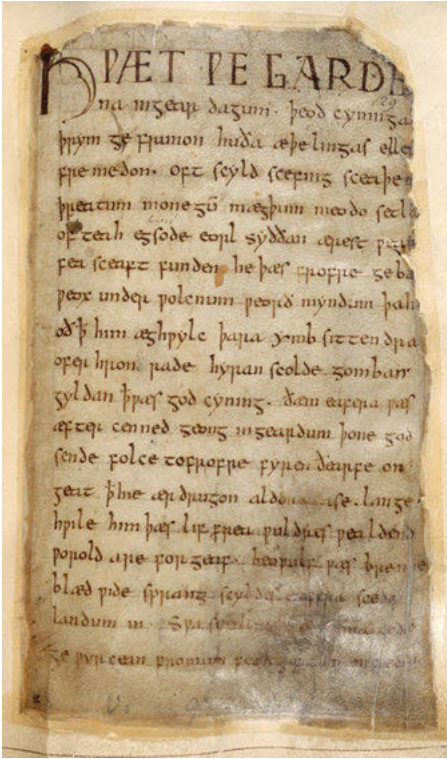 HǷÆT ǷE GARDE
129
na ingear dagum. þeod cyninga
þrym ge frunon huða æþelingas elle
fre medon. oft scyld scefing sceaþe
þreatum monegū mægþum meodo setla
of teah egsode eorl syððan ærest ƿear
fea sceaft funden he þæs frofre geba
ƿeox under ƿolcnum ƿeorð myndum þah
oð ꝥ him æghƿylc þara ymb sittendra
ofer hron rade hyran scolde gomban
gyldan ꝥ ƿæs god cyning. ðæm eafera ƿæs
æfter cenned geong ingeardum þone god
sende folce tofrofre fyren ðearfe on
geat ꝥ hie ær drugon aldor ase. lange
hƿile him þæs lif frea ƿuldres ƿealdend
ƿorold are for geaf. beoƿulf ƿæs breme
blæd ƿide sprang scyldes eafera scede
landum in. Sƿa
ge ƿyrcean fromum feoh giftum